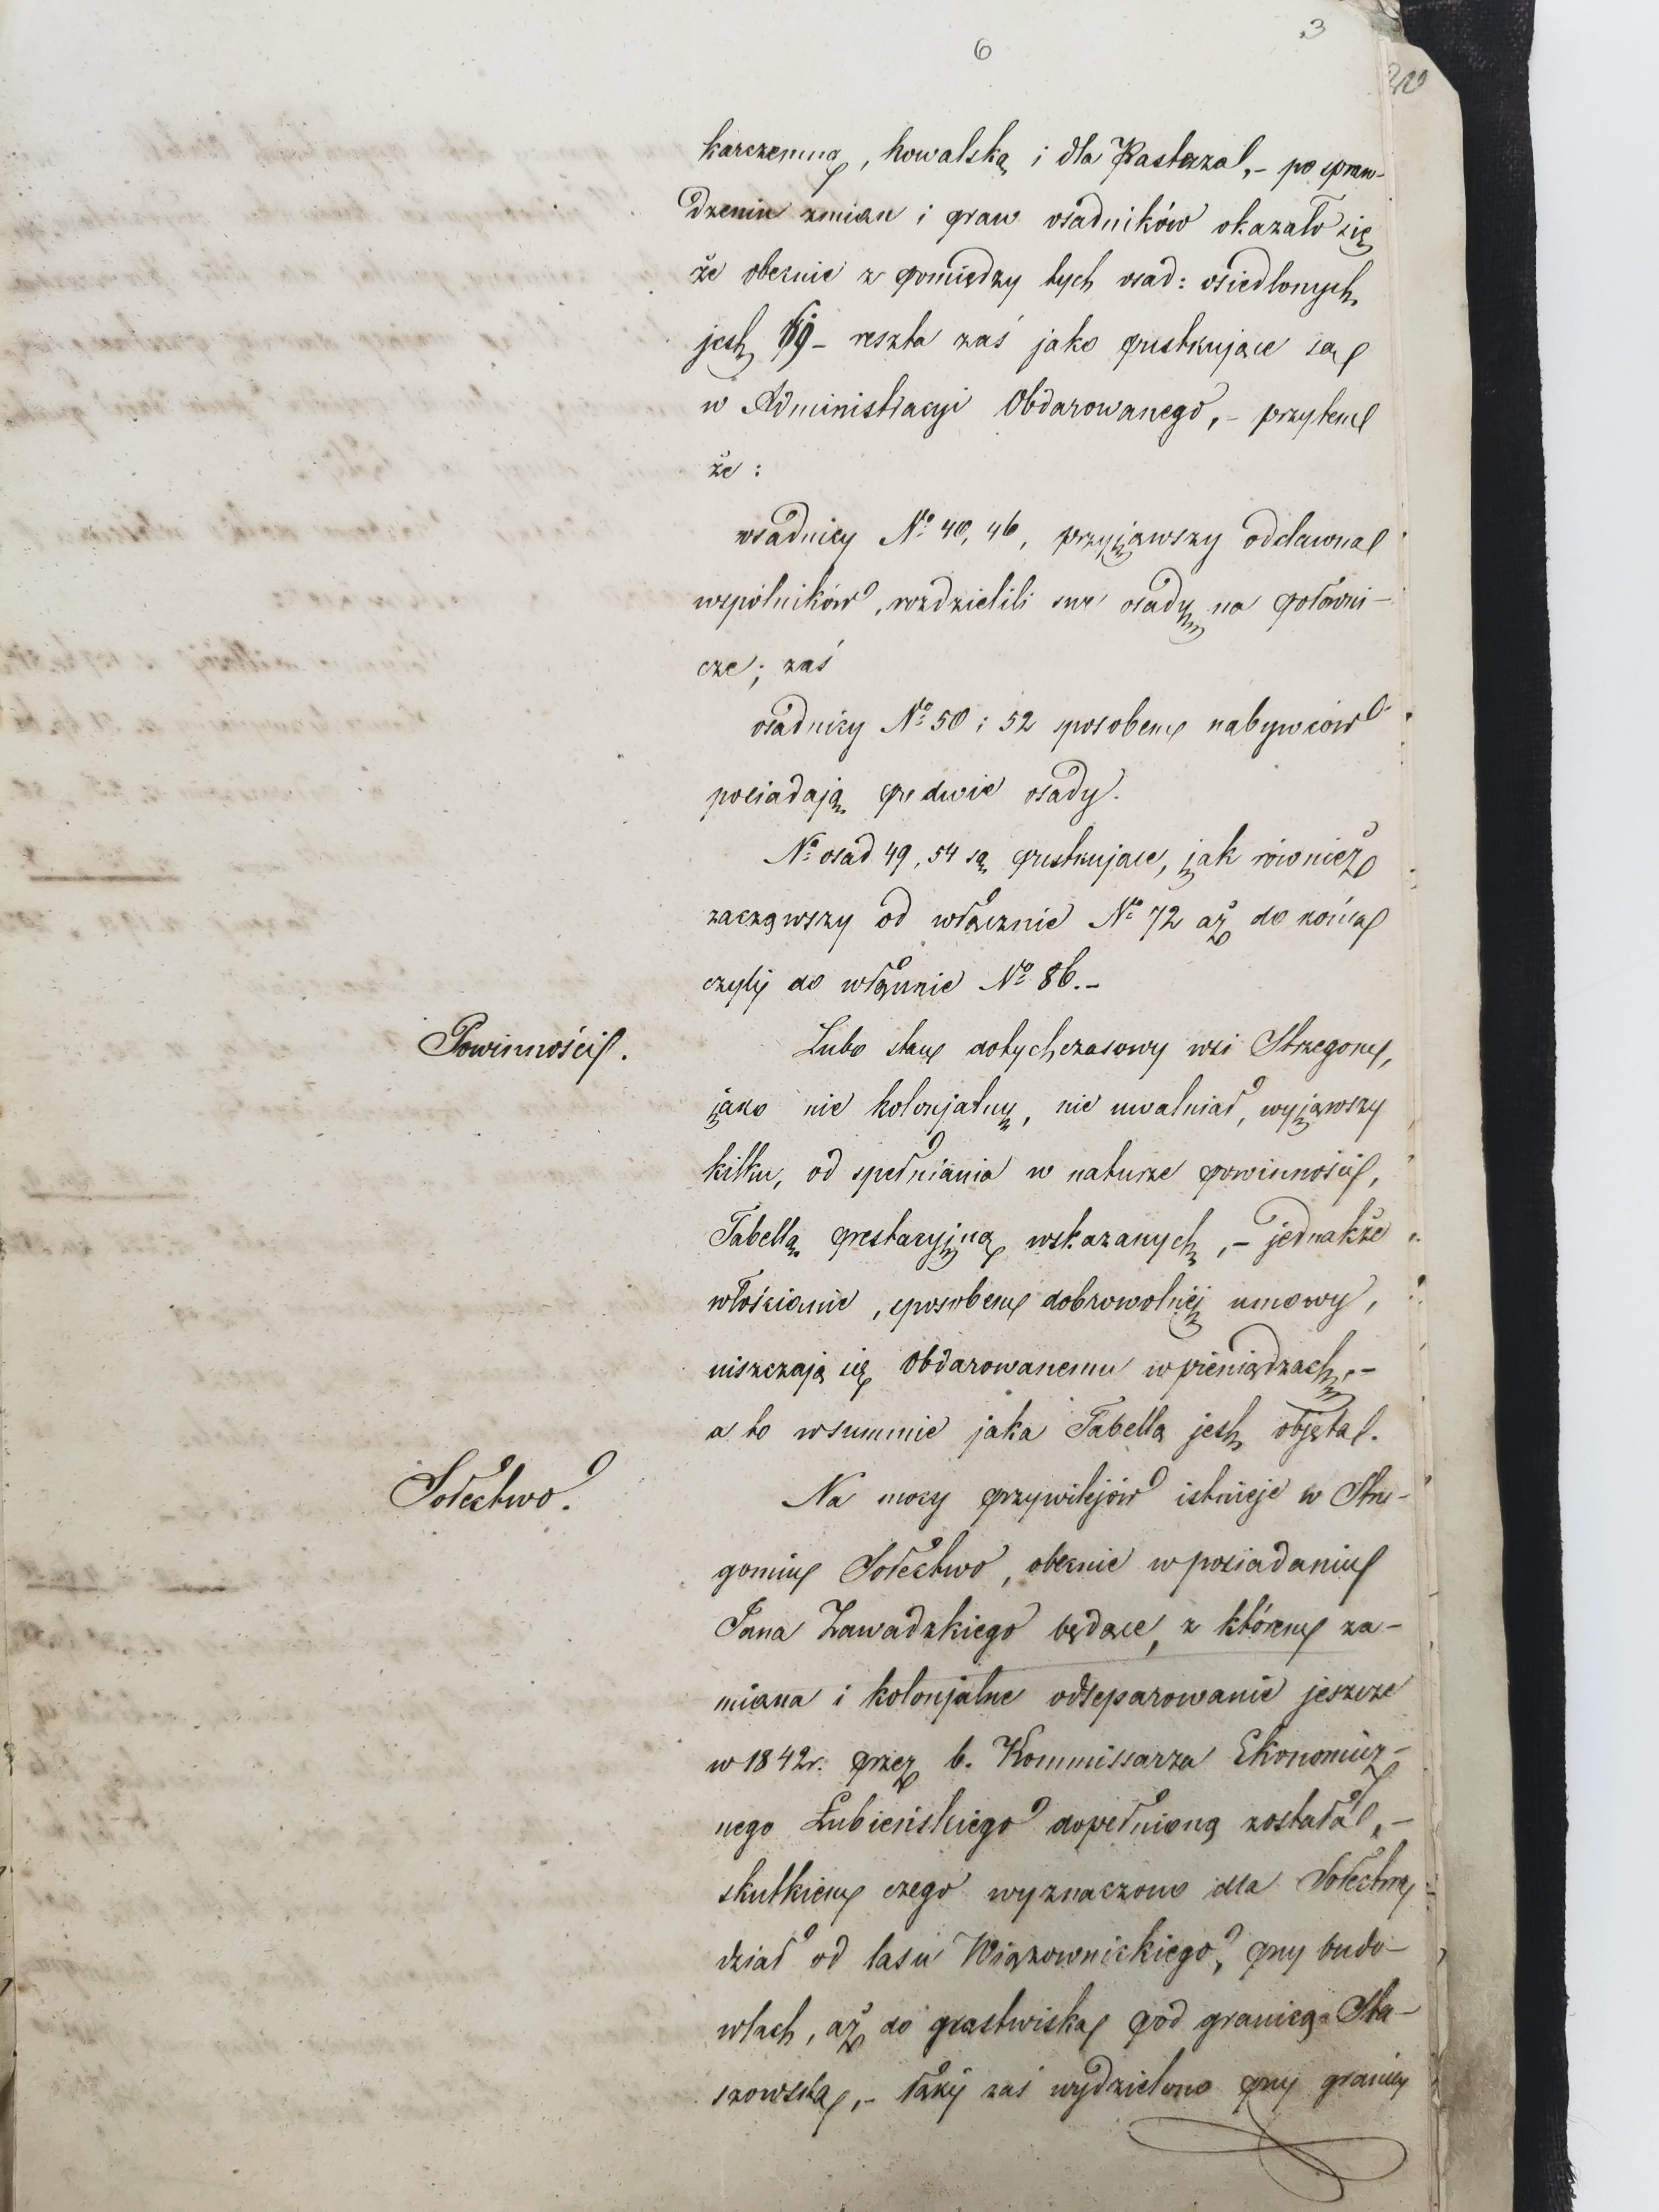 6
3
karczemną, kowalską i dla Pastarza, - po spraw-
dzeniu zmian i praw osadników okazało się
że obecnie z pomiędzy tych osad: osiedlonych
jest 69 - reszta zaś jako pustkujące są
w Administracyi Obdarowanego, - przytem
że:
osadnicy No 40, 46, przyjąwszy oddawna
wspólników, rozdzielili swe osady na połowni-
cze; zaś
osadnicy No 50 i 52 sposobem nabywców
posiadają po dwie osady.
No osad 49, 54 są pustkujące, jak również
zacząwszy od włącznie No 72 aż do końca
czyli do włącznie No 86. -
Powinności.
Lubo stan dotychczasowy wsi Strzegom,
jako nie kolonjalny, nie uwalniał, wyjąwszy
kilku, od spełniania w naturze powinności,
Tabellą prestacyjną wskazanych, - jednakże
włościanie, sposobem dobrowolnéj umowy,
uiszczają się Obdarowanemu w pieniądzach, -
a to w summie jaka Tabellą jest objęta.
Sołectwo.
Na mocy przywilejów istnieje w Strze-
gomiu Sołectwo, obecnie w posiadaniu
Jana Zawadzkiego będące, z którem za-
miana i kolonjalne odseparowanie jeszcze
w 1842 r. przez b. Kommissarza Ekonomicz-
nego Łubieńskiego dopełnioną została, -
skutkiem czego wyznaczono dla Sołectwa
dział od lasu Wiązownickiego, przy budo-
wlach, aż do pastwiska pod granicą Sta-
szowską, - łąkę zaś wydzielono przy granicy